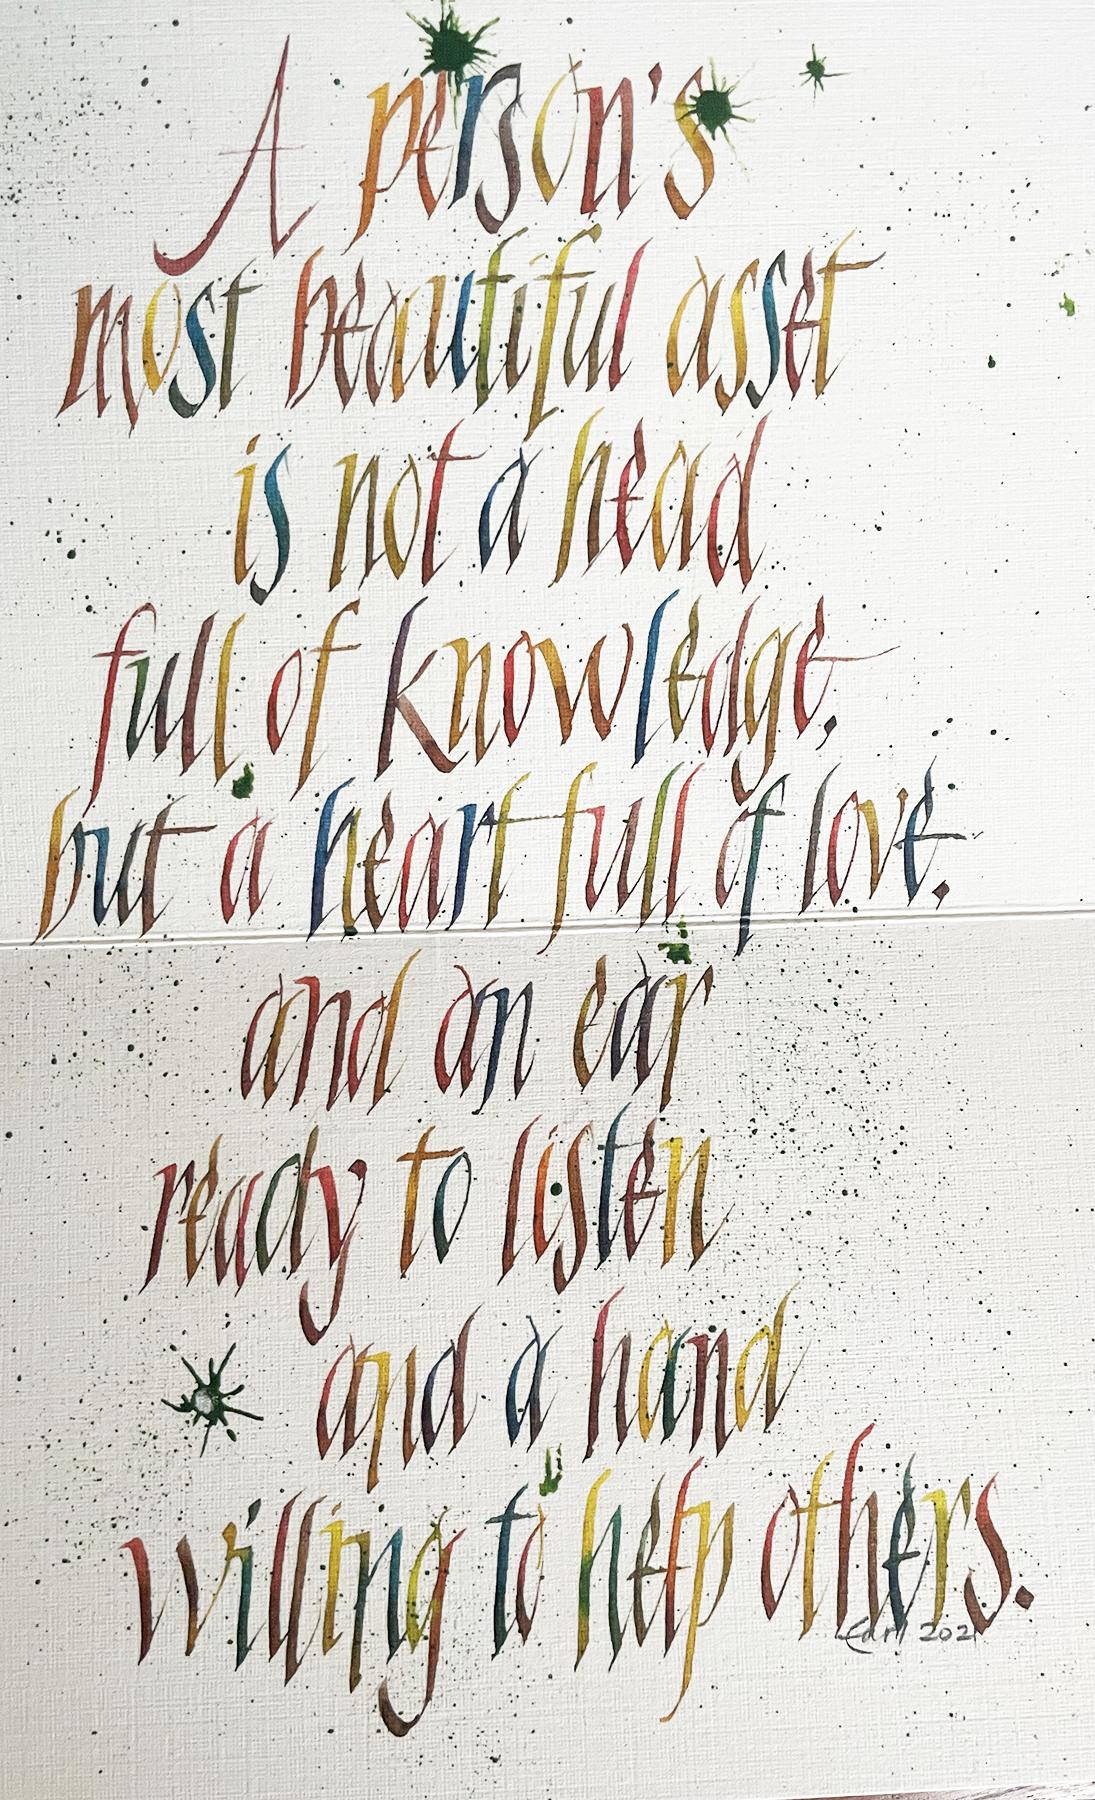 A person's
most beautiful asset
is not a head
full of knowledge,
but a heart full of love.
and an ear
ready to listen
and a hand
willing to help others.
Earl 2021